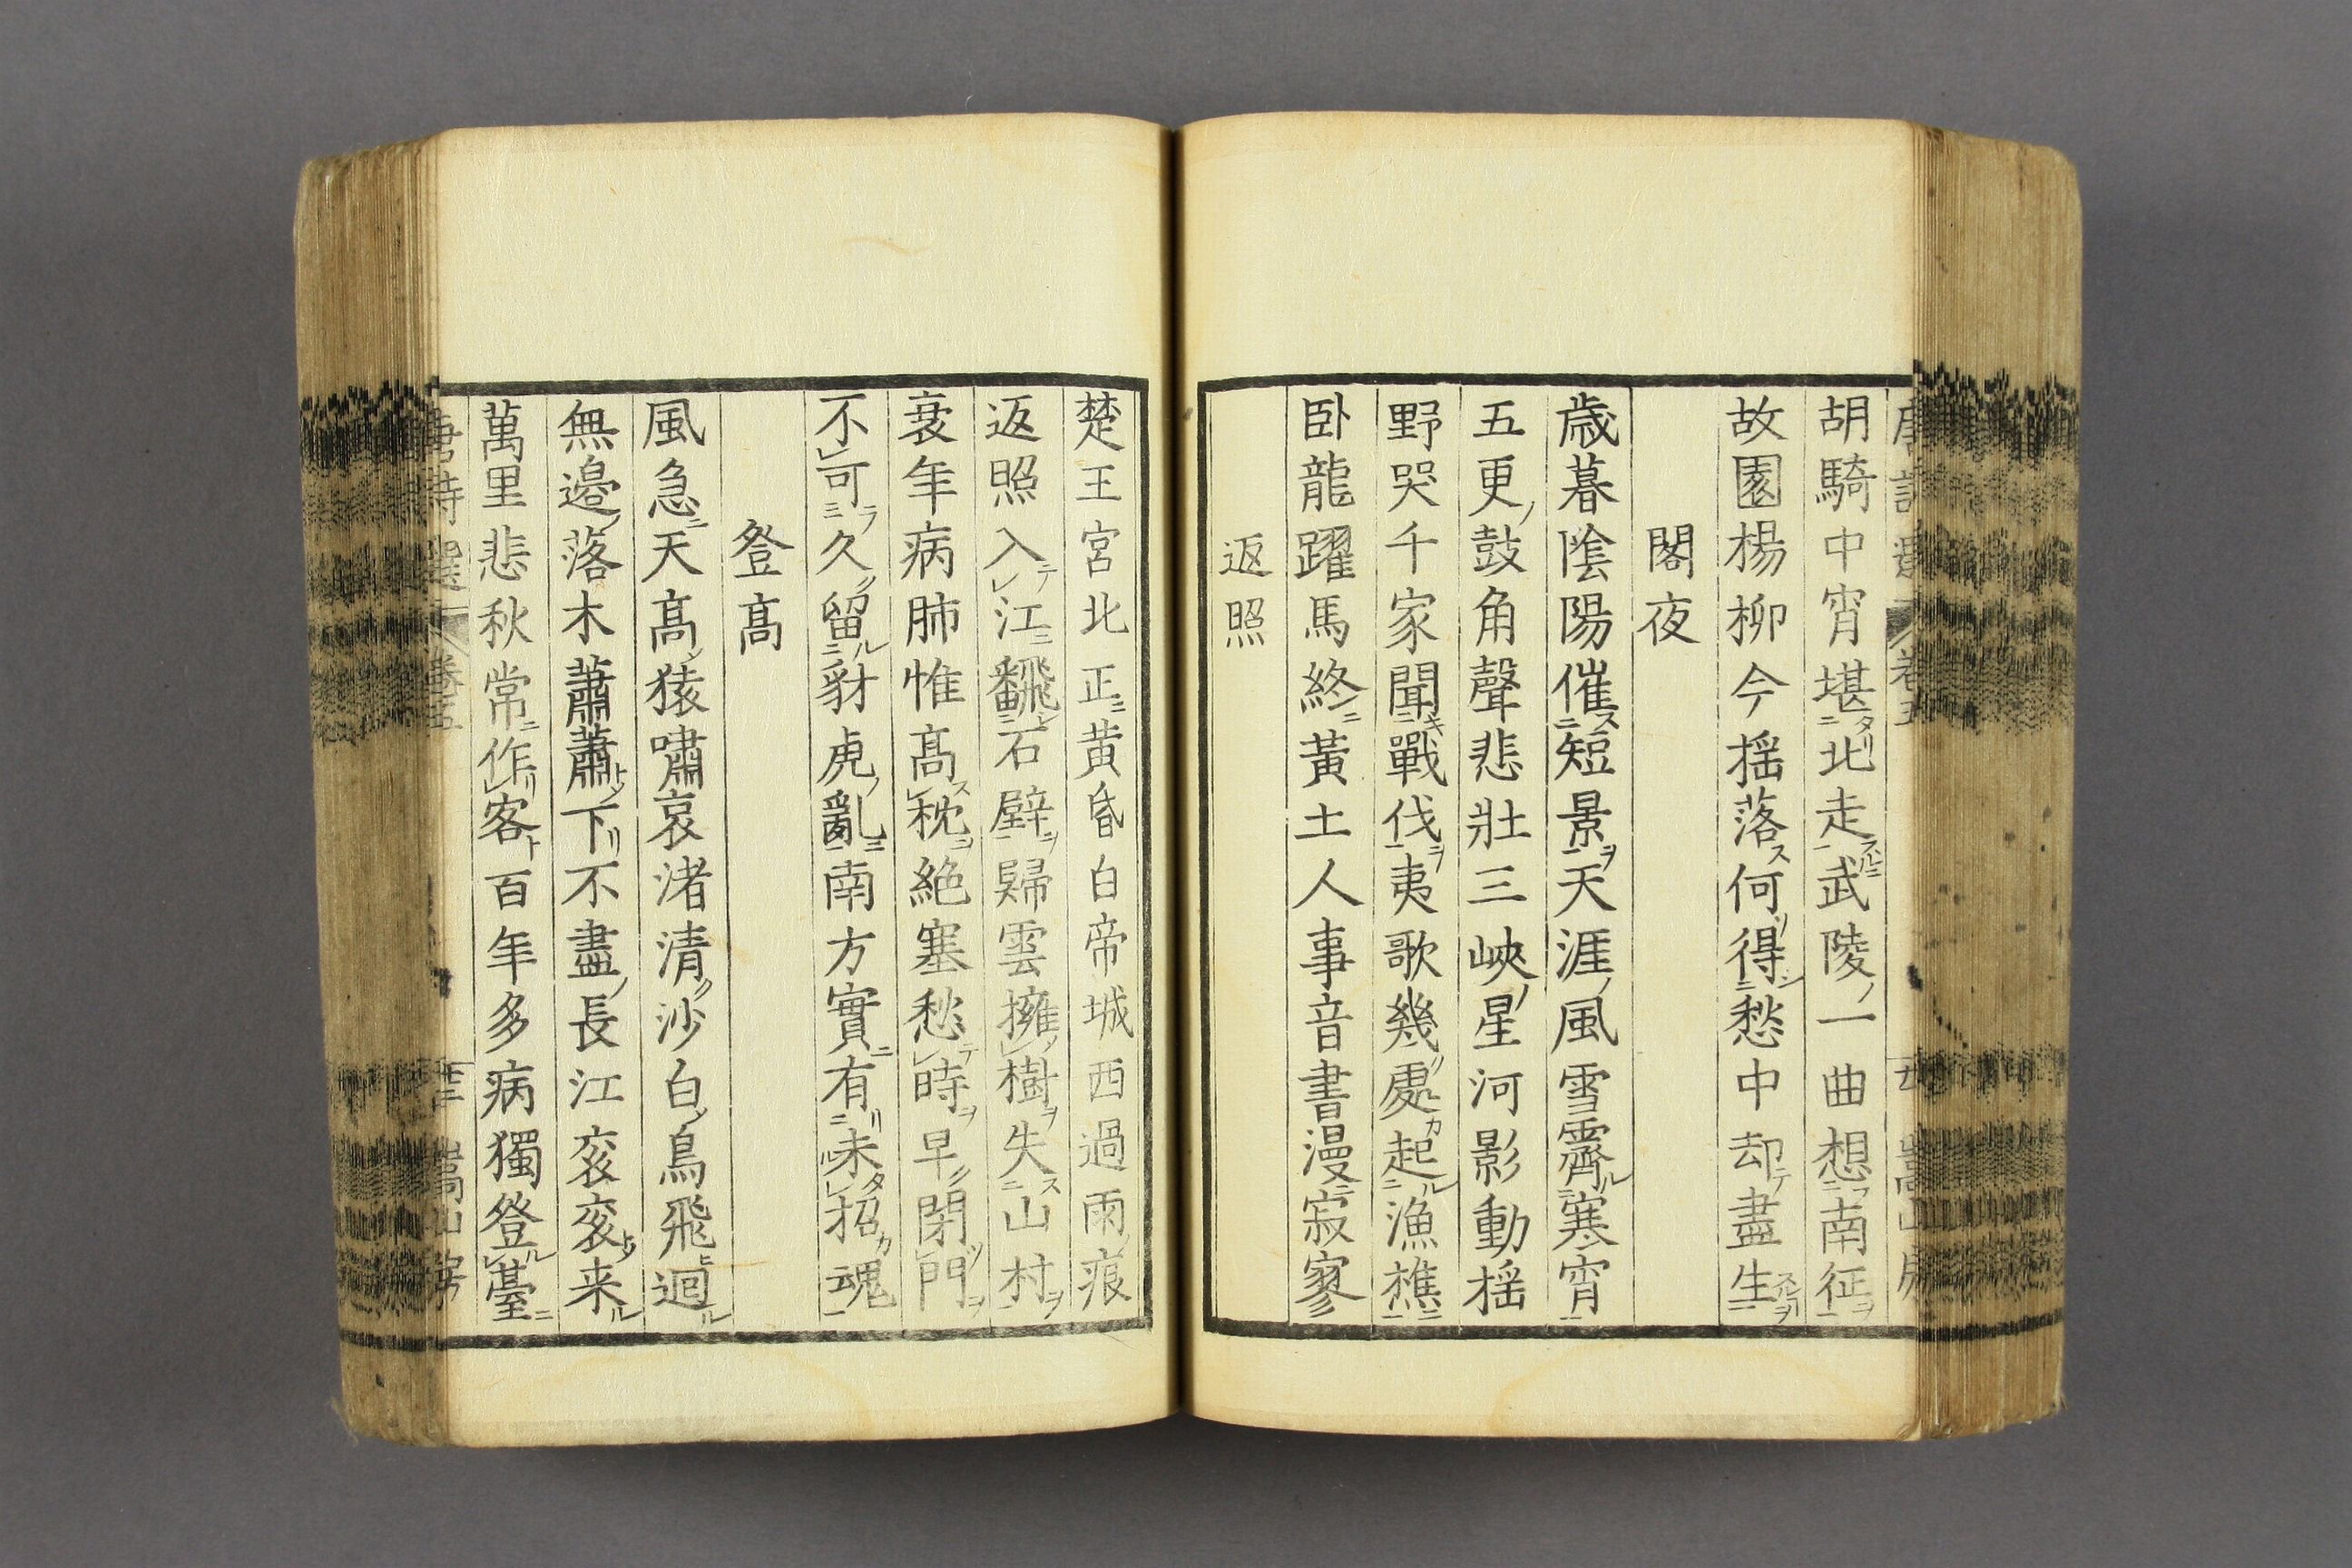 胡騎中宵堪北走武陵一曲想南征
故園楊柳今揺落何得愁中却盡生
閣夜
歳暮陰陽催短景天涯風雪霽寒宵
五更鼓角聲悲壯三峽星河影動揺
野哭千家聞戰伐夷歌幾處起漁樵
卧龍躍馬終黃土人事音書漫寂寥
返照
楚王宮北正黄昏白帝城西過雨痕
返照入江飜石壁歸雲擁樹失山村
衰年病肺惟髙枕絶塞愁時早閉門
不可久留豺虎亂南方實有未招魂
登髙
風急天髙猿嘯哀渚清沙白鳥飛迴
無邊落木蕭蕭下不盡長江衮衮来
萬里悲秋常作客百年多病獨登臺
唐詩選 卷五 嵩山房